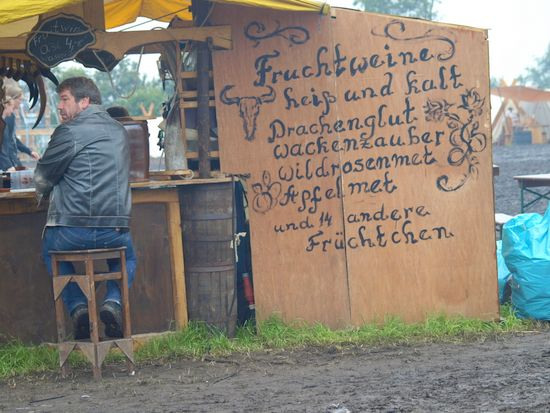 Fruchtweine
heiß und kalt
Drachenglut
Wackenzauber
Wildrosenmet
Apfelmet
und 14 andere
Früchtchen